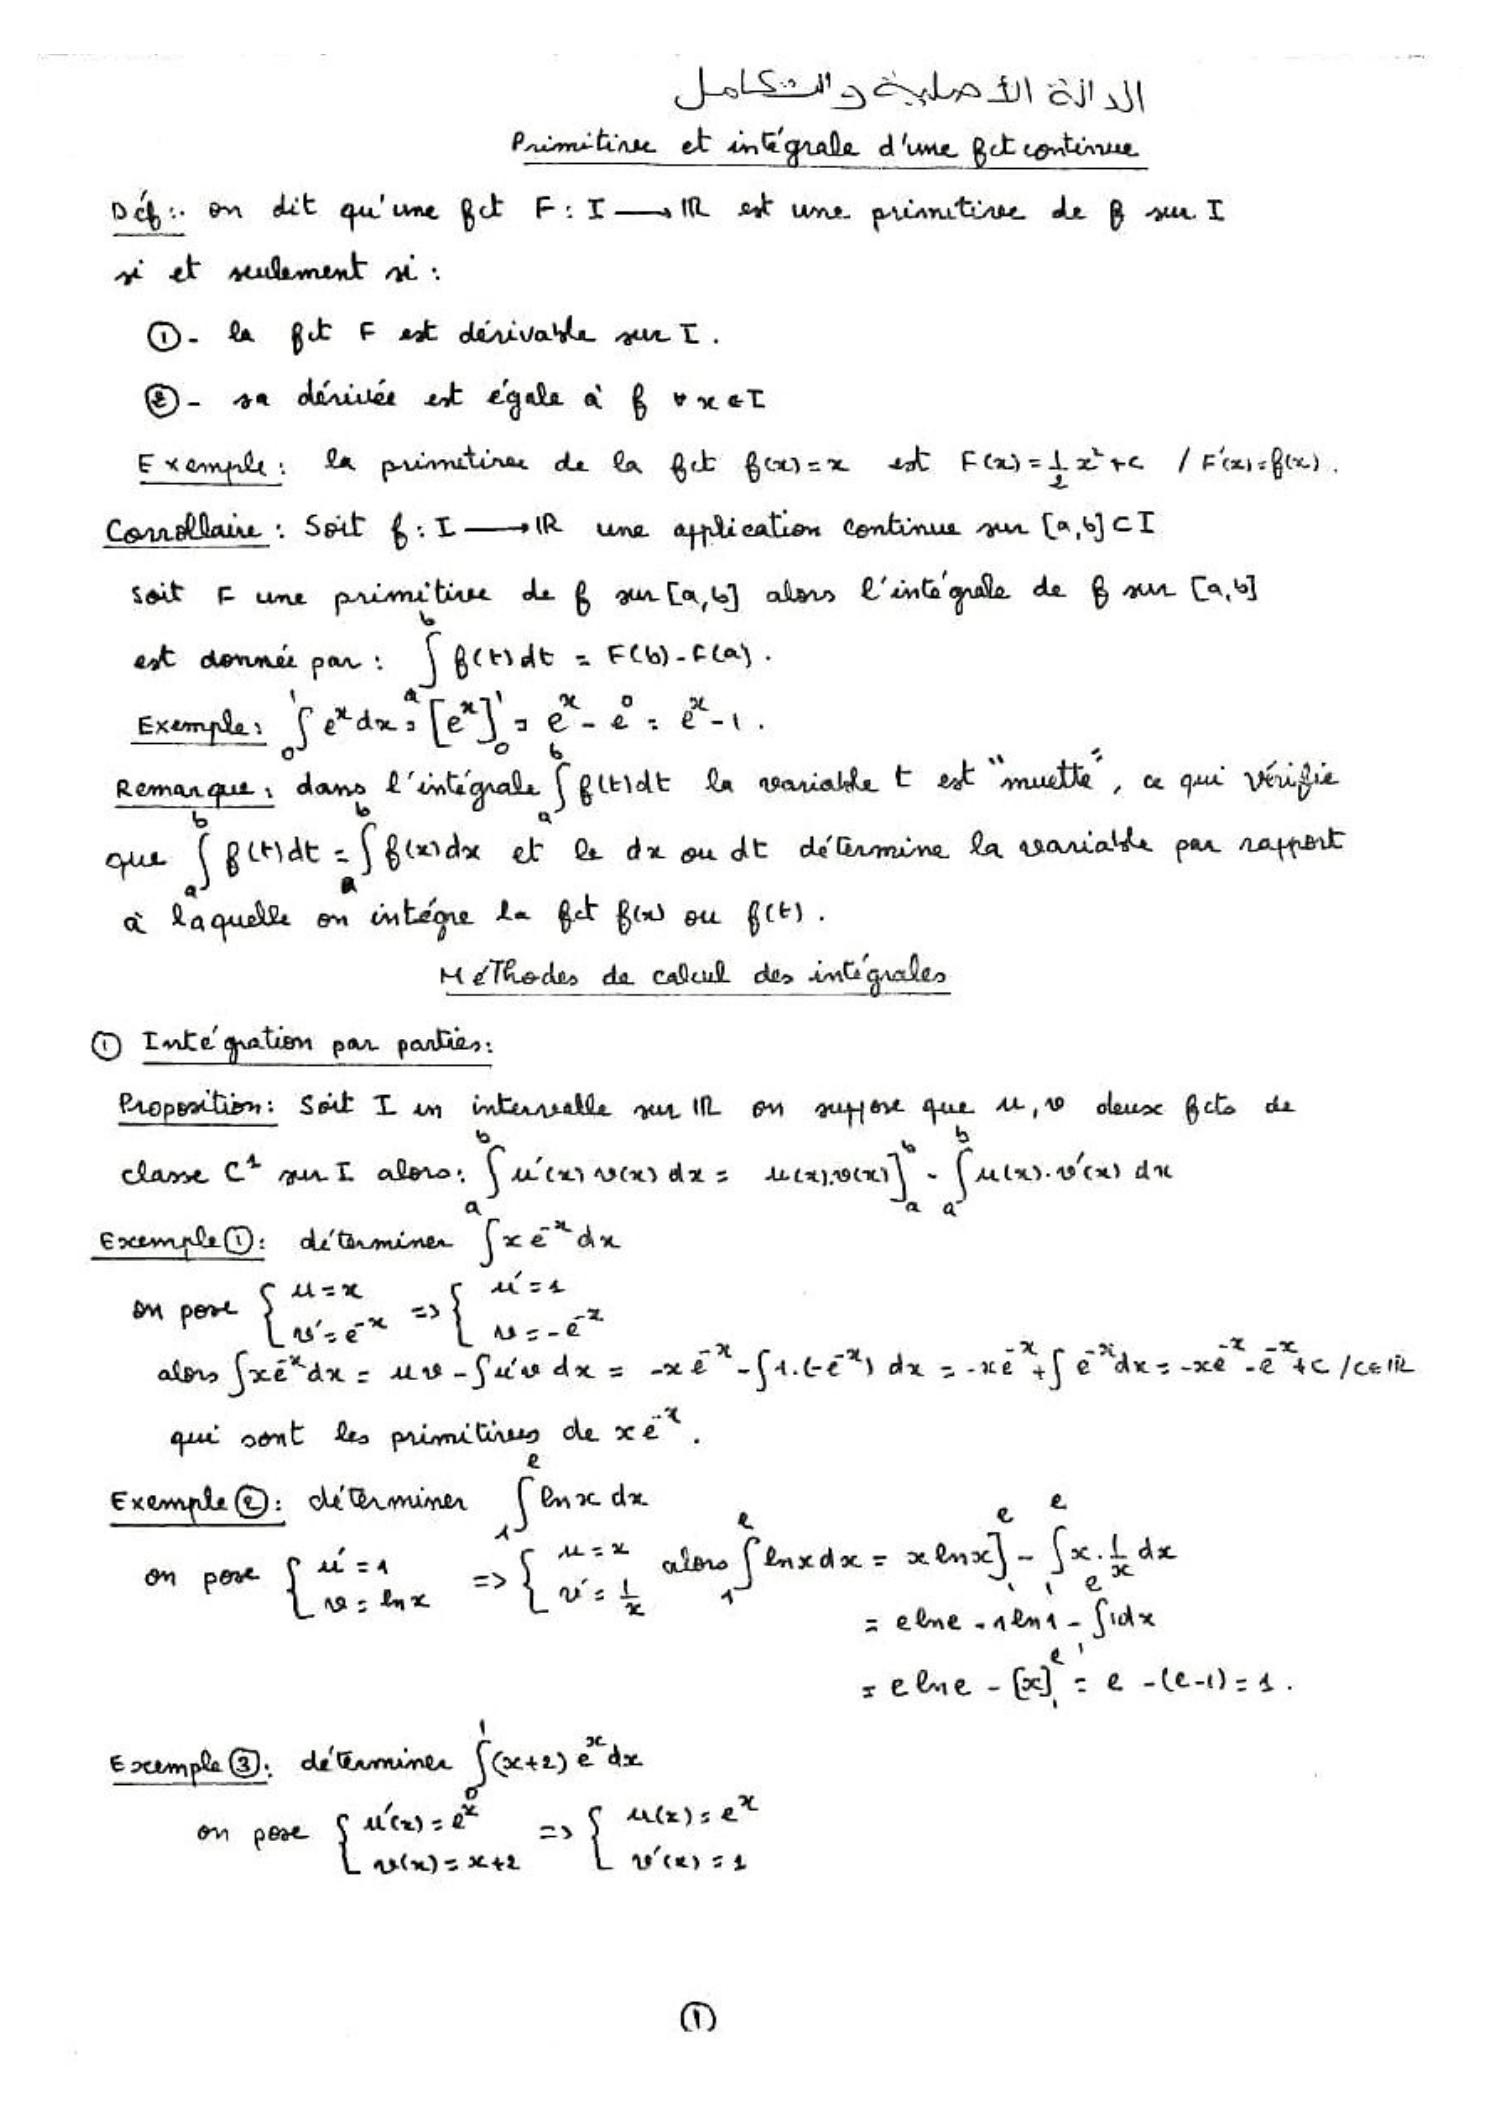 الدالة الأصلية والتكامل
Primitive et intégrale d'une fct continue
Déf:. on dit qu'une fct F : I → IR est une primitive de f sur I
si et seulement si :
① - la fct F est dérivable sur I.
② - sa dérivée est égale à f ∀ x ∈ I
Exemple : la primitive de la fct f(x) = x est F(x) = 1/2 x² + c / F'(x) = f(x).
Corrollaire : Soit f : I → IR une application continue sur [a,b] ⊂ I
soit F une primitive de f sur [a,b] alors l'intégrale de f sur [a,b]
est donnée par : ∫_a^b f(t) dt = F(b) - F(a).
Exemple : ∫_0^1 e^x dx = [e^x]_0^1 = e^x - e^0 = e^x - 1.
Remarque : dans l'intégrale ∫_a^b f(t) dt la variable t est "muette", ce qui vérifie
que ∫_a^b f(t) dt = ∫_a^b f(x) dx et le dx ou dt détermine la variable par rapport
à laquelle on intégre la fct f(x) ou f(t).
Méthodes de calcul des intégrales
① Intégration par parties :
Proposition : Soit I un intervalle sur IR on suppose que u, v deux fcts de
classe C^1 sur I alors : ∫_a^b u'(x) v(x) dx = u(x).v(x)]_a^b - ∫_a^b u(x).v'(x) dx
Exemple ① : déterminer ∫ x e^-x dx
on pose { u = x , v' = e^-x => { u' = 1 , v = -e^-x
alors ∫ x e^-x dx = uv - ∫ u'v dx = -x e^-x - ∫ 1.(-e^-x) dx = -x e^-x + ∫ e^-x dx = -x e^-x - e^-x + c / c ∈ IR
qui sont les primitives de x e^-x.
Exemple ② : déterminer ∫_1^e ln x dx
on pose { u' = 1 , v = ln x => { u = x , v' = 1/x alors ∫_1^e ln x dx = x ln x]_1^e - ∫_1^e x . 1/x dx
= e ln e - 1 ln 1 - ∫_1^e 1 dx
= e ln e - [x]_1^e = e - (e-1) = 1.
Exemple ③ : déterminer ∫_0^1 (x+2) e^x dx
on pose { u'(x) = e^x , v(x) = x+2 => { u(x) = e^x , v'(x) = 1
①